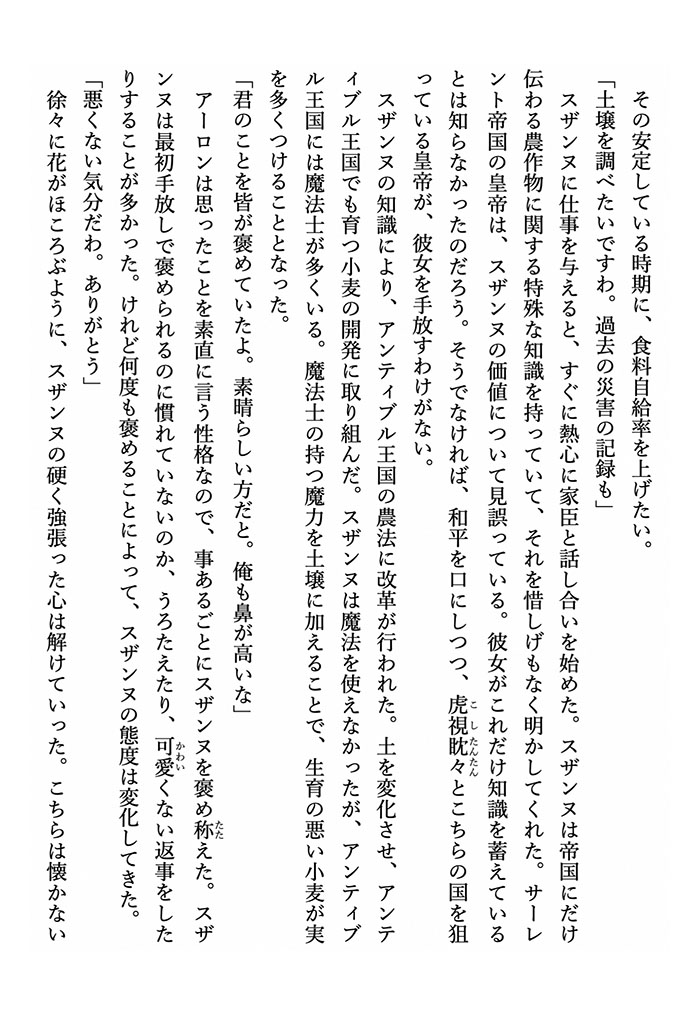 その安定している時期に、食料自給率を上げたい。
「土壌を調べたいですわ。過去の災害の記録も」
スザンヌに仕事を与えると、すぐに熱心に家臣と話し合いを始めた。スザンヌは帝国にだけ
伝わる農作物に関する特殊な知識を持っていて、それを惜しげもなく明かしてくれた。サーレ
ント帝国の皇帝は、スザンヌの価値について見誤っている。彼女がこれだけ知識を蓄えている
とは知らなかったのだろう。そうでなければ、和平を口にしつつ、虎視眈々とこちらの国を狙
っている皇帝が、彼女を手放すわけがない。
スザンヌの知識により、アンティブル王国の農法に改革が行われた。土を変化させ、アンテ
ィブル王国でも育つ小麦の開発に取り組んだ。スザンヌは魔法を使えなかったが、アンティブ
ル王国には魔法士が多くいる。魔法士の持つ魔力を土壌に加えることで、生育の悪い小麦が実
を多くつけることとなった。
「君のことを皆が褒めていたよ。素晴らしい方だと。俺も鼻が高いな」
アーロンは思ったことを素直に言う性格なので、事あるごとにスザンヌを褒め称えた。スザ
ンヌは最初手放しで褒められるのに慣れていないのか、うろたえたり、可愛くない返事をした
りすることが多かった。けれど何度も褒めることによって、スザンヌの態度は変化してきた。
「悪くない気分だわ。ありがとう」
徐々に花がほころぶように、スザンヌの硬く強張った心は解けていった。こちらは懐かない